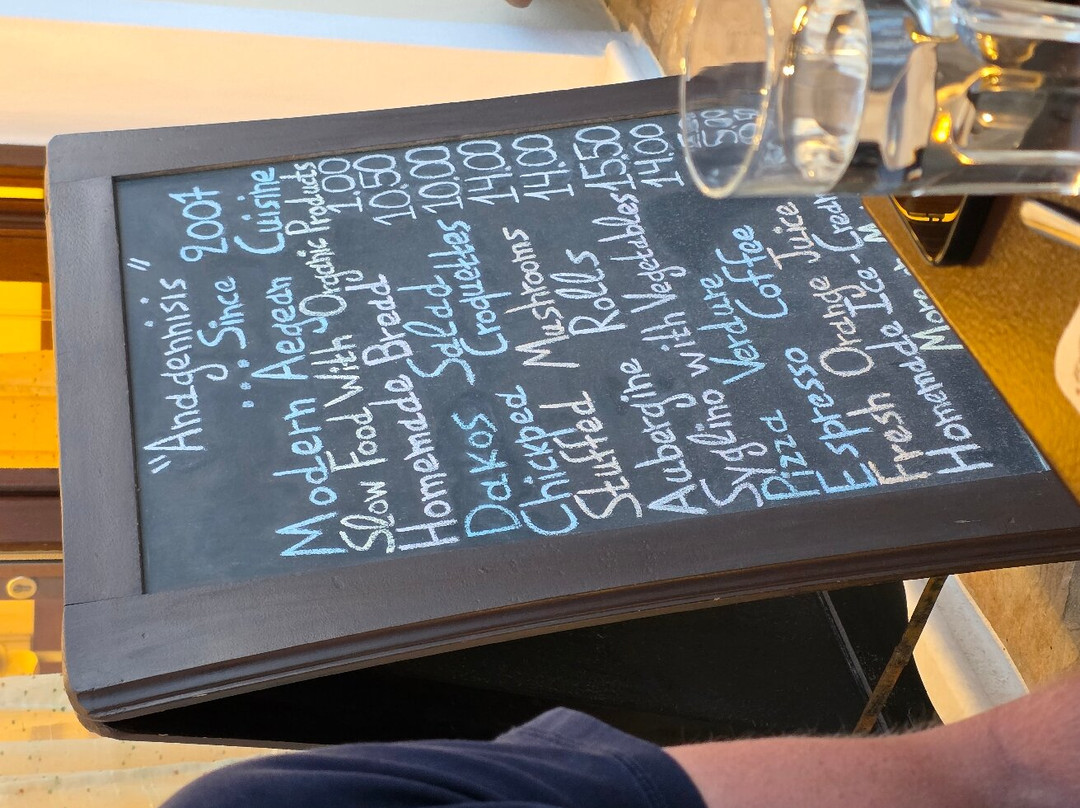 "Anagennisis"
... Since 2007
Modern Aegean Cuisine
Slow Food With Organic Products
Homemade Bread 1.00
Dakos Salad 10.50
Chickpea Croquettes 10.00
Stuffed Mushrooms 14.00
Aubergine Rolls 14.00
Syglino with Vegetables 15.50
Pizza Verdure 14.00
Espresso Coffee
Fresh Orange Juice
Homemade Ice-Cream
More